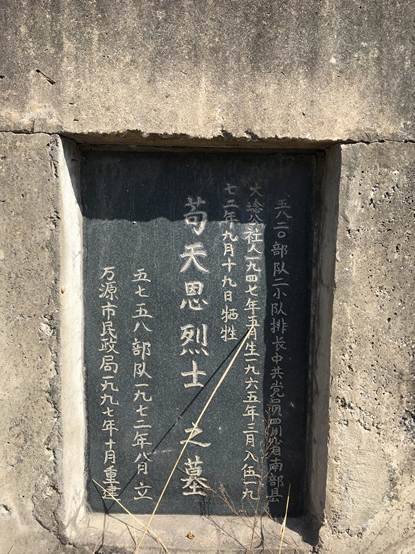 五八二〇部队二小队排长中共党员四川省南部县
大埝公社人一九四七年五月生一九六五年三月入伍一九
七二年九月十九日牺牲
苟天恩烈士之墓
五七五八部队一九七二年八月立
万源市民政局一九九七年十月重建